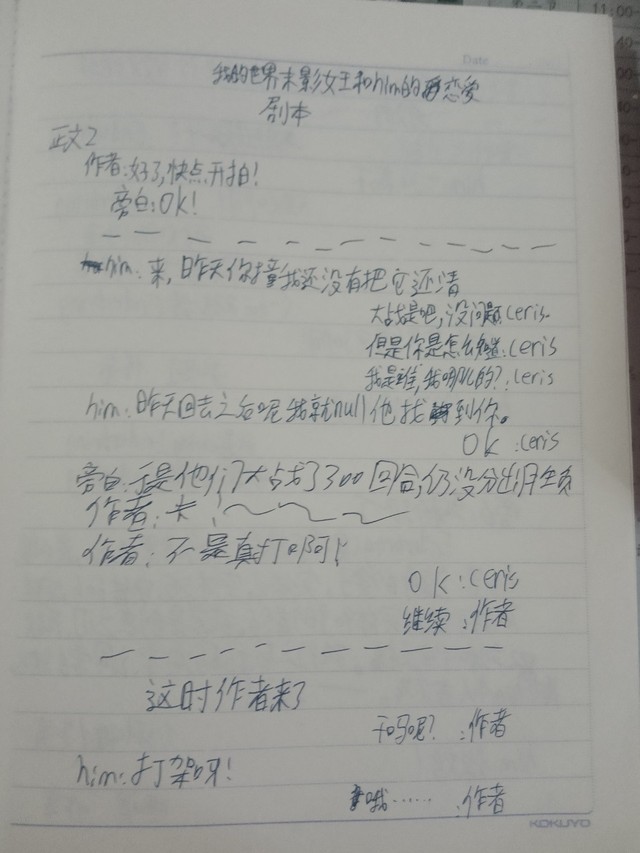 11:00-
Date
我的世界末影女王和him的恋爱
剧本
正文2
作者:好了,快点开拍!
旁白:OK!
him:来,昨天你撞我还没有把它还清
大战是吧,没问题:Ceris
但是你是怎么:Ceris
我是谁,我哪儿的?:Ceris
him:昨天回去之后呢我就null他找到你。
OK:Ceris
旁白:于是他们大战了300回合,仍没分出胜负
作者:卡!
作者:不是真打啊!
OK:Ceris
继续:作者
这时作者来了
干吗呢?:作者
him:打架呀!
哦……:作者
KOKUYO